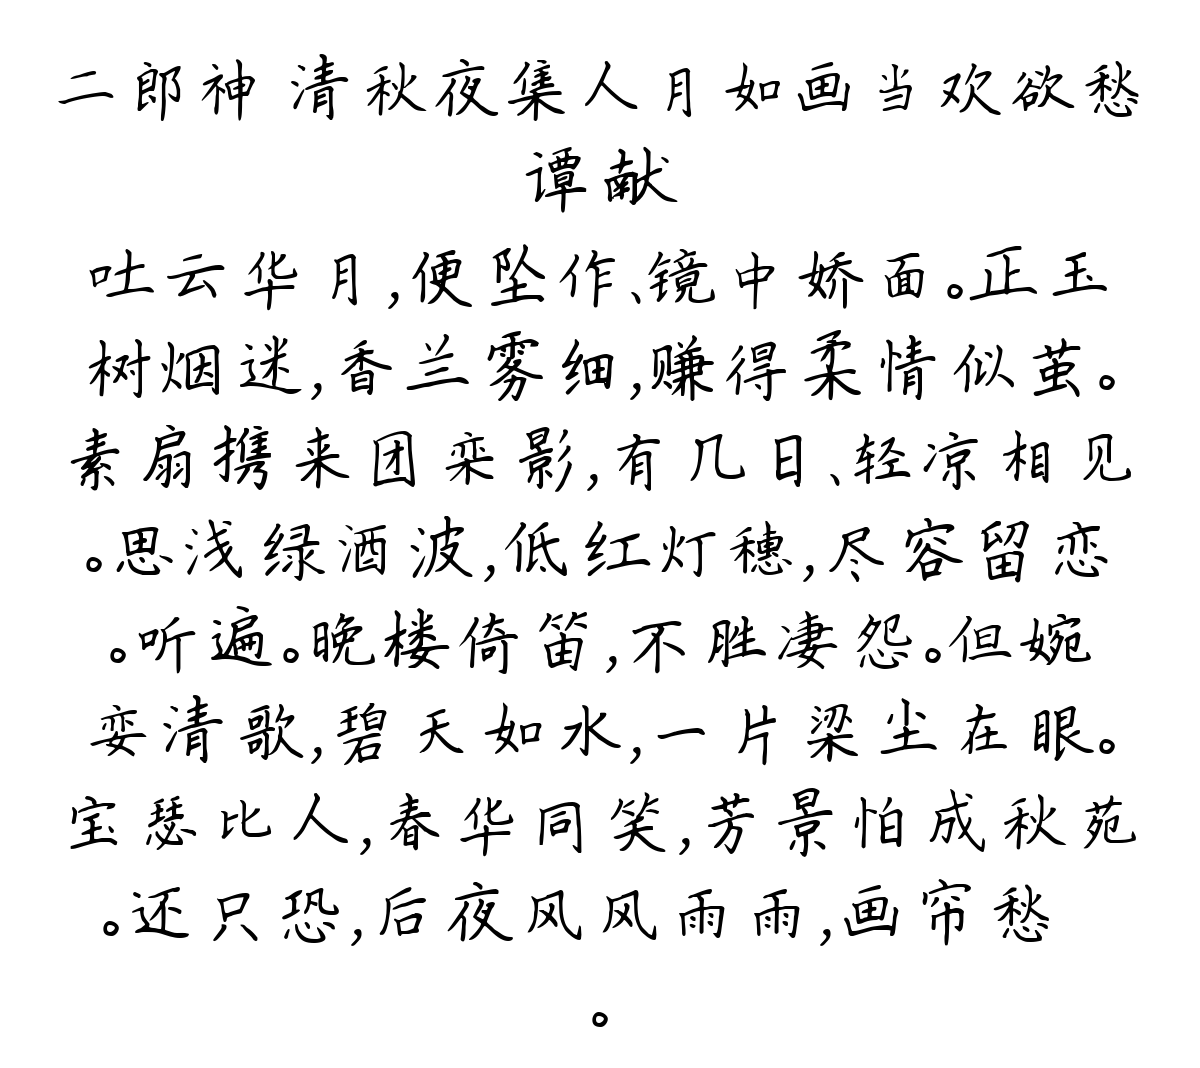 二郎神 清秋夜集人月如画当欢欲愁
谭献
吐云华月,便坠作、镜中娇面。正玉
树烟迷,香兰雾细,赚得柔情似茧。
素扇携来团栾影,有几日、轻凉相见
。思浅绿酒波,低红灯穗,尽容留恋
。听遍。晚楼倚笛,不胜凄怨。但婉
娈清歌,碧天如水,一片梁尘在眼。
宝瑟比人,春华同笑,芳景怕成秋苑
。还只恐,后夜风风雨雨,画帘愁
。